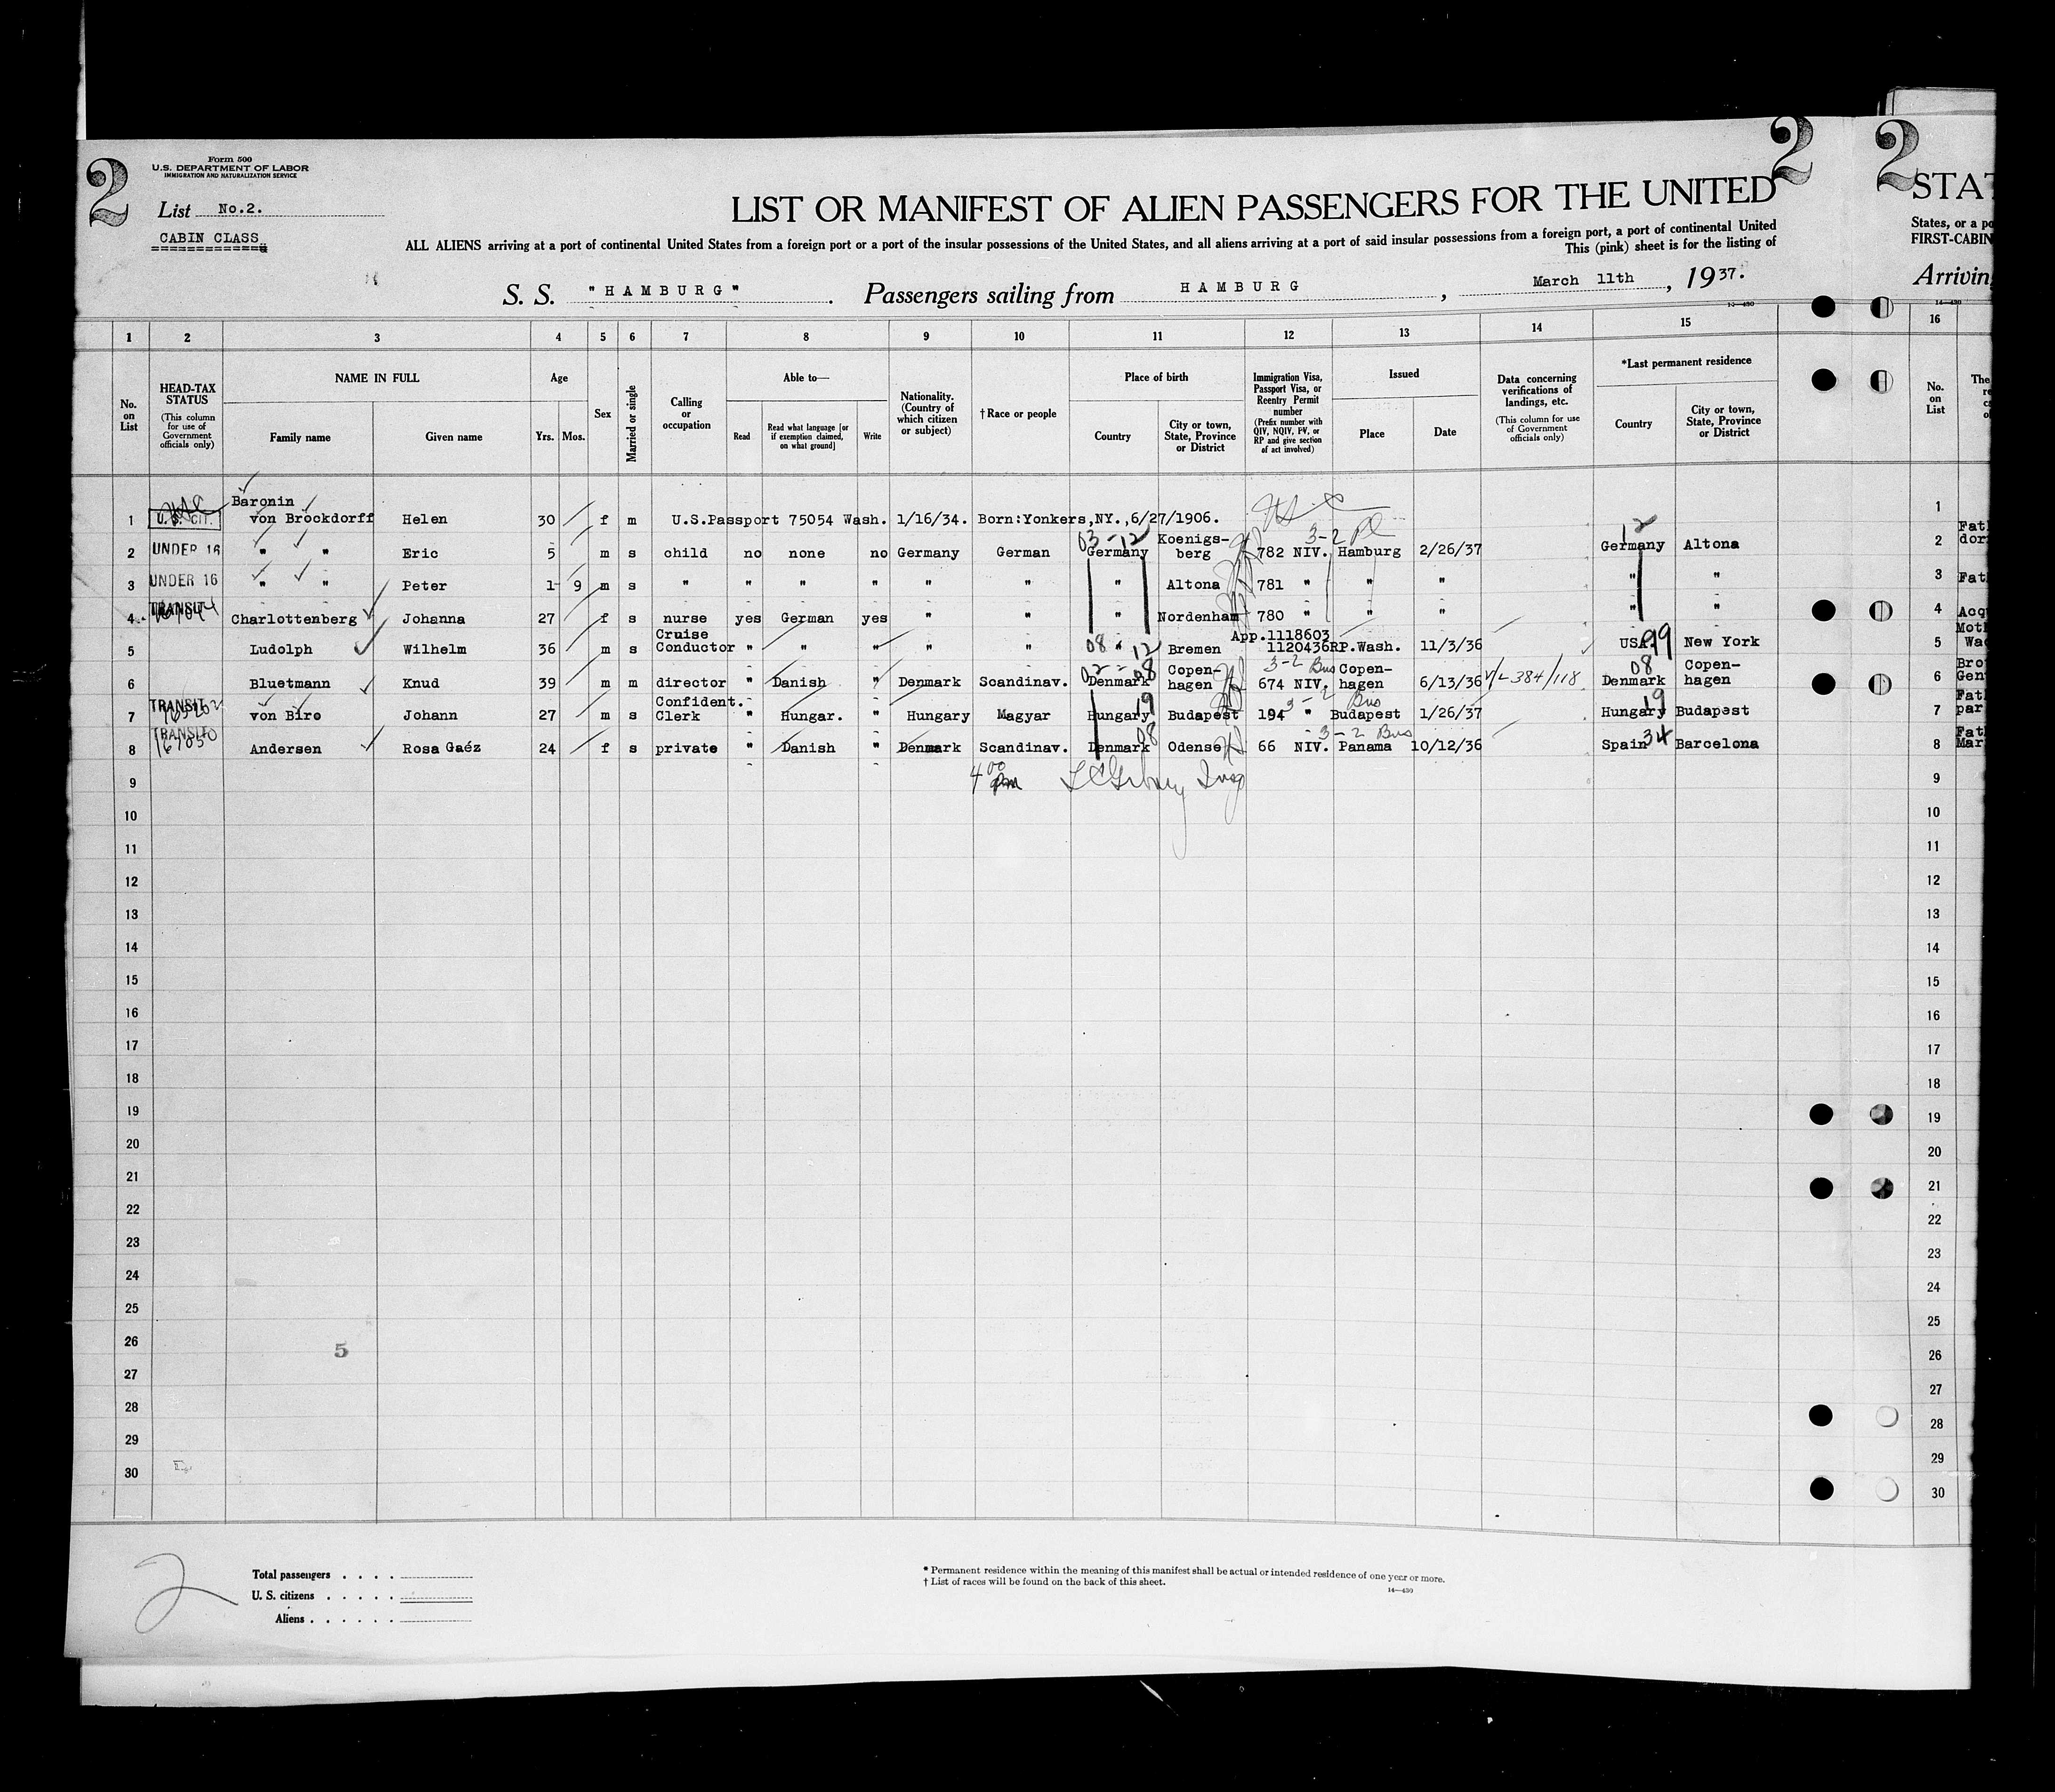 2 2 2
Form 500
U.S. DEPARTMENT OF LABOR
IMMIGRATION AND NATURALIZATION SERVICE
List No.2.
CABIN CLASS
LIST OR MANIFEST OF ALIEN PASSENGERS FOR THE UNITED
STAT
ALL ALIENS arriving at a port of continental United States from a foreign port or a port of the insular possessions of the United States, and all aliens arriving at a port of said insular possessions from a foreign port, a port of continental United
States, or a po
This (pink) sheet is for the listing of
FIRST-CABIN
S. S. "HAMBURG". Passengers sailing from HAMBURG, March 11th, 1937.
Arriving
14—430
1 2 3 4 5 6 7 8 9 10 11 12 13 14 15 16
No. on List
HEAD-TAX STATUS
(This column for use of Government officials only)
NAME IN FULL
Family name Given name
Age
Yrs. Mos.
Sex
Married or single
Calling or occupation
Able to—
Read
Read what language [or if exemption claimed, on what ground]
Write
Nationality. (Country of which citizen or subject)
† Race or people
Place of birth
Country
City or town, State, Province or District
Immigration Visa, Passport Visa, or Reentry Permit number
(Prefix number with QIV, NQIV, PV, or RP and give section of act involved)
Issued
Place Date
Data concerning verifications of landings, etc.
(This column for use of Government officials only)
*Last permanent residence
Country
City or town, State, Province or District
No. on List
Baronin
1 U.S. CIT. von Brockdorff Helen 30 f m U.S.Passport 75054 Wash. 1/16/34. Born:Yonkers,NY.,6/27/1906. 1
03-12 3-2 Pl 12
2 UNDER 16 " " Eric 5 m s child no none no Germany German Germany Koenigs-berg 782 NIV. Hamburg 2/26/37 Germany Altona 2
3 UNDER 16 " " Peter 1 9 m s " " " " " " " Altona 781 " " " " " 3
4 TRANSIT Charlottenberg Johanna 27 f s nurse yes German yes " " " Nordenham 780 " " " " " 4
5 Ludolph Wilhelm 36 m s Cruise Conductor " " " " " 08 " 12 Bremen App.1118603 1120436RP.Wash. 11/3/36 USA. 99 New York 5
02-08 3-2 Bus 08
6 Bluetmann Knud 39 m m director " Danish " Denmark Scandinav. Denmark Copen-hagen 674 NIV. Copen-hagen 6/13/36 384/118 Denmark Copen-hagen 6
19 3-2 Bus 19
7 TRANSIT von Biro Johann 27 m s Confident. Clerk " Hungar. " Hungary Magyar Hungary Budapest 194 " Budapest 1/26/37 Hungary Budapest 7
08 3-2 Bus 34
8 TRANSIT Andersen Rosa Gaéz 24 f s private " Danish " Denmark Scandinav. Denmark Odense 66 NIV. Panama 10/12/36 Spain Barcelona 8
9 4 00 pm 9
10 10
11 11
12 12
13 13
14 14
15 15
16 16
17 17
18 18
19 19
20 20
21 21
22 22
23 23
24 24
25 25
26 5 26
27 27
28 28
29 29
30 30
2
Total passengers
U. S. citizens
Aliens
* Permanent residence within the meaning of this manifest shall be actual or intended residence of one year or more.
† List of races will be found on the back of this sheet.
14—430